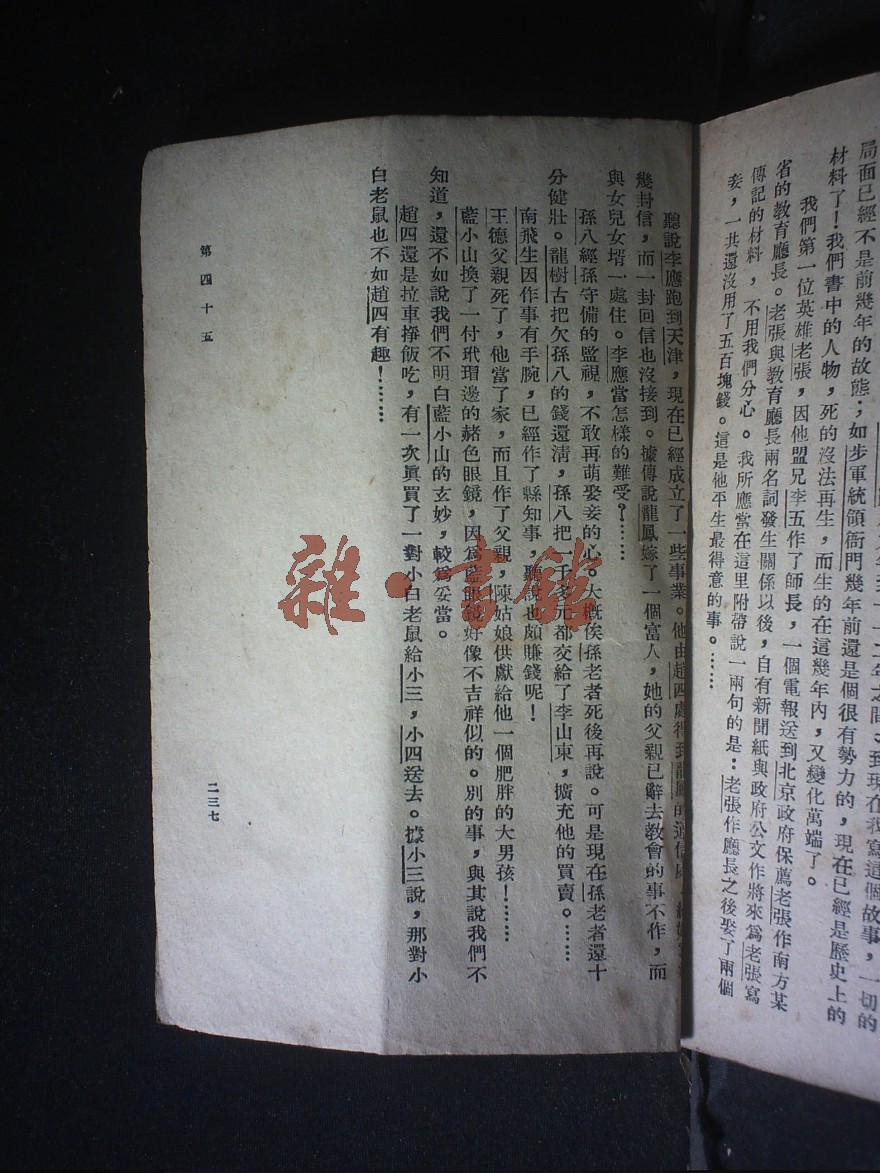 局面已經不是前幾年的故態；如步軍統領衙門幾年前還是個很有勢力的，現在已經是歷史上的
材料了！我們書中的人物，死的沒法再生，而生的在這幾年內，又變化萬端了。
我們第一位英雄老張，因他盟兄李五作了師長，一個電報送到北京政府保薦老張作南方某
省的教育廳長。老張與教育廳長兩名詞發生關係以後，自有新聞紙與政府公文作將來爲老張寫
傳記的材料，不用我們分心。我所應當在這里附帶說一兩句的是：老張作廳長之後娶了兩個
妾，一共還沒用了五百塊錢。這是他平生最得意的事。……
聽說李應跑到天津，現在已經成立了一些事業。他由趙四處得到龍鳳的通信
幾封信，而一封回信也沒接到。據傳說龍鳳嫁了一個富人，她的父親已辭去教會的事不作，而
與女兒女壻一處住。李應當怎樣的難受？……
孫八經孫守備的監視，不敢再萌娶妾的心。大概俟孫老者死後再說。可是現在孫老者還十
分健壯。龍樹古把欠孫八的錢還清，孫八把一千多元都交給了李山東，擴充他的買賣。……
南飛生因作事有手腕，已經作了縣知事，聽說也頗賺錢呢！
王德父親死了，他當了家，而且作了父親，陳姑娘供獻給他一個肥胖的大男孩！……
藍小山換了一付玳瑁邊的赭色眼鏡，因爲藍眼鏡好像不吉祥似的。別的事，與其說我們不
知道，還不如說我們不明白藍小山的玄妙，較爲妥當。
趙四還是拉車掙飯吃，有一次眞買了一對小白老鼠給小三，小四送去。據小三說，那對小
白老鼠也不如趙四有趣！……
第四十五
二三七
雜·書館